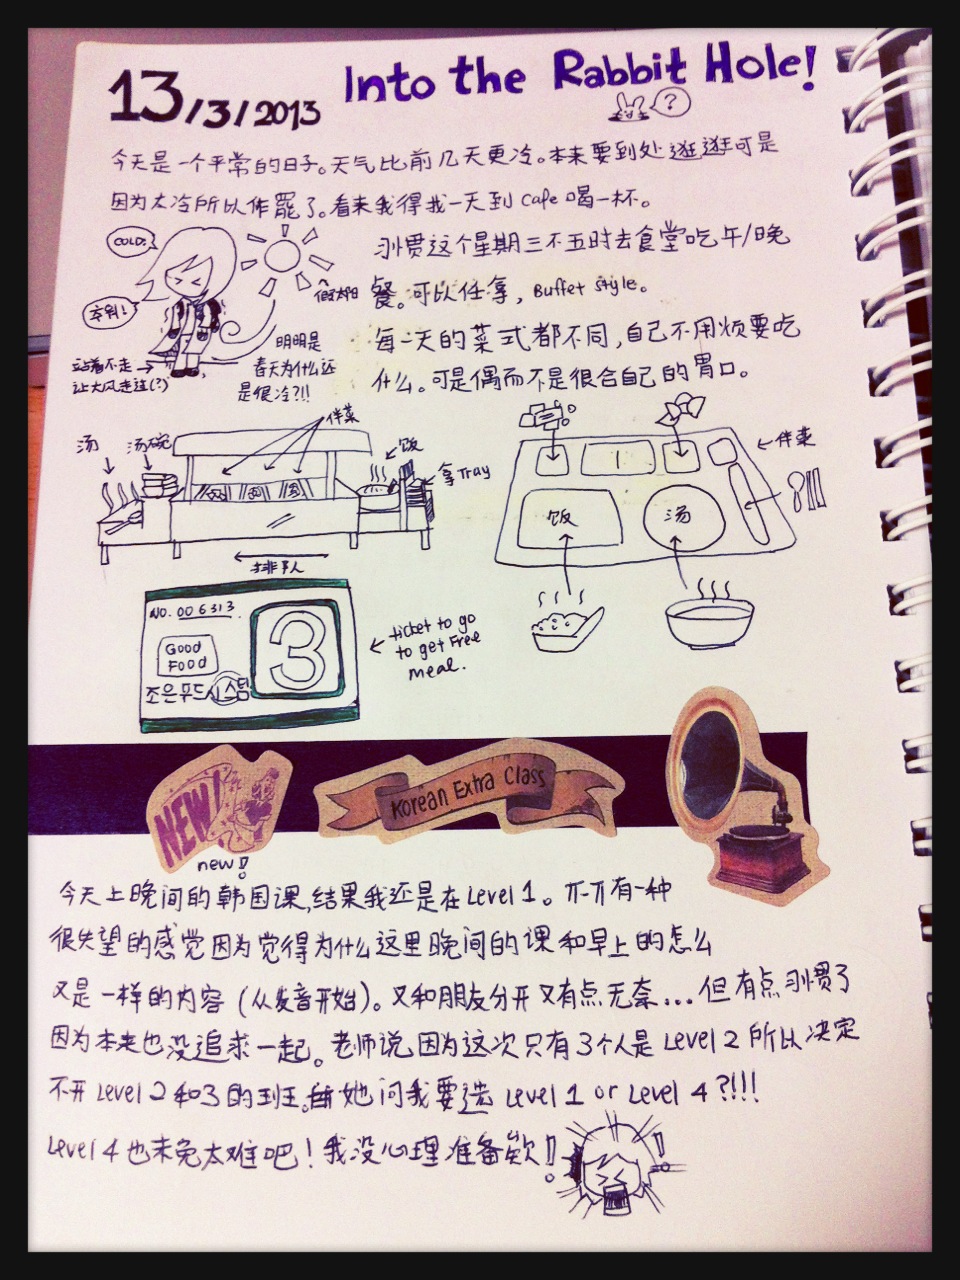 13/3/2013
Into the Rabbit Hole!
?
今天是一个平常的日子。天气比前几天更冷。本来要到处逛逛可是
因为太冷所以作罢了。看来我得找一天到 Cafe 喝一杯。
COLD!
习惯这个星期三不五时去食堂吃午/晚
餐。可以任拿, Buffet style。
每一天的菜式都不同,自己不用烦要吃
什么。可是偶而不是很合自己的胃口。
假太阳
明明是
春天为什么还
是很冷?!!
站着不走
让大风走过(?)
汤
汤碗
伴菜
饭
拿 Tray
排队
伴菜
饭
汤
NO. 006313
Good
Food
3
조은푸드시스템
ticket to go
to get Free
meal.
NEW!
new!
Korean Extra Class
今天上晚间的韩国课,结果我还是在Level 1。有一种
很失望的感觉因为觉得为什么这里晚间的课和早上的怎么
又是一样的内容(从发音开始)。又和朋友分开又有点无奈...但有点习惯了
因为本来也没追求一起。老师说因为这次只有3个人是 Level 2 所以决定
不开 Level 2 和 3 的班。她问我要选 Level 1 or Level 4?!!!
Level 4 也未免太难吧!我没心理准备欸!!